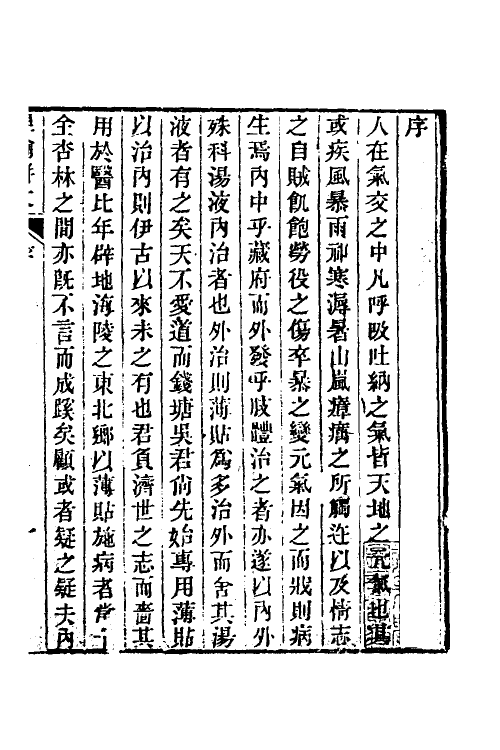 序
人在氣交之中凡呼吸吐納之氣皆天地之元氣也
或疾風暴雨祁寒溽暑山嵐瘴癘之所觸迕以及情志
之自賊飢飽勞役之傷卒暴之變元氣因之而戕則病
生焉內中乎藏府而外發乎肢體治之者亦遂以內外
殊科湯液內治者也外治則薄貼為多治外而舍其湯
液者有之矣天不愛道而錢塘吳君尙先始專用薄貼
以治內則伊古以來未之有也君負濟世之志而嗇其
用於醫比年辟地海陵之東北鄉以薄貼施病者
全杏林之間亦旣不言而成蹊矣顧或者疑之疑夫內